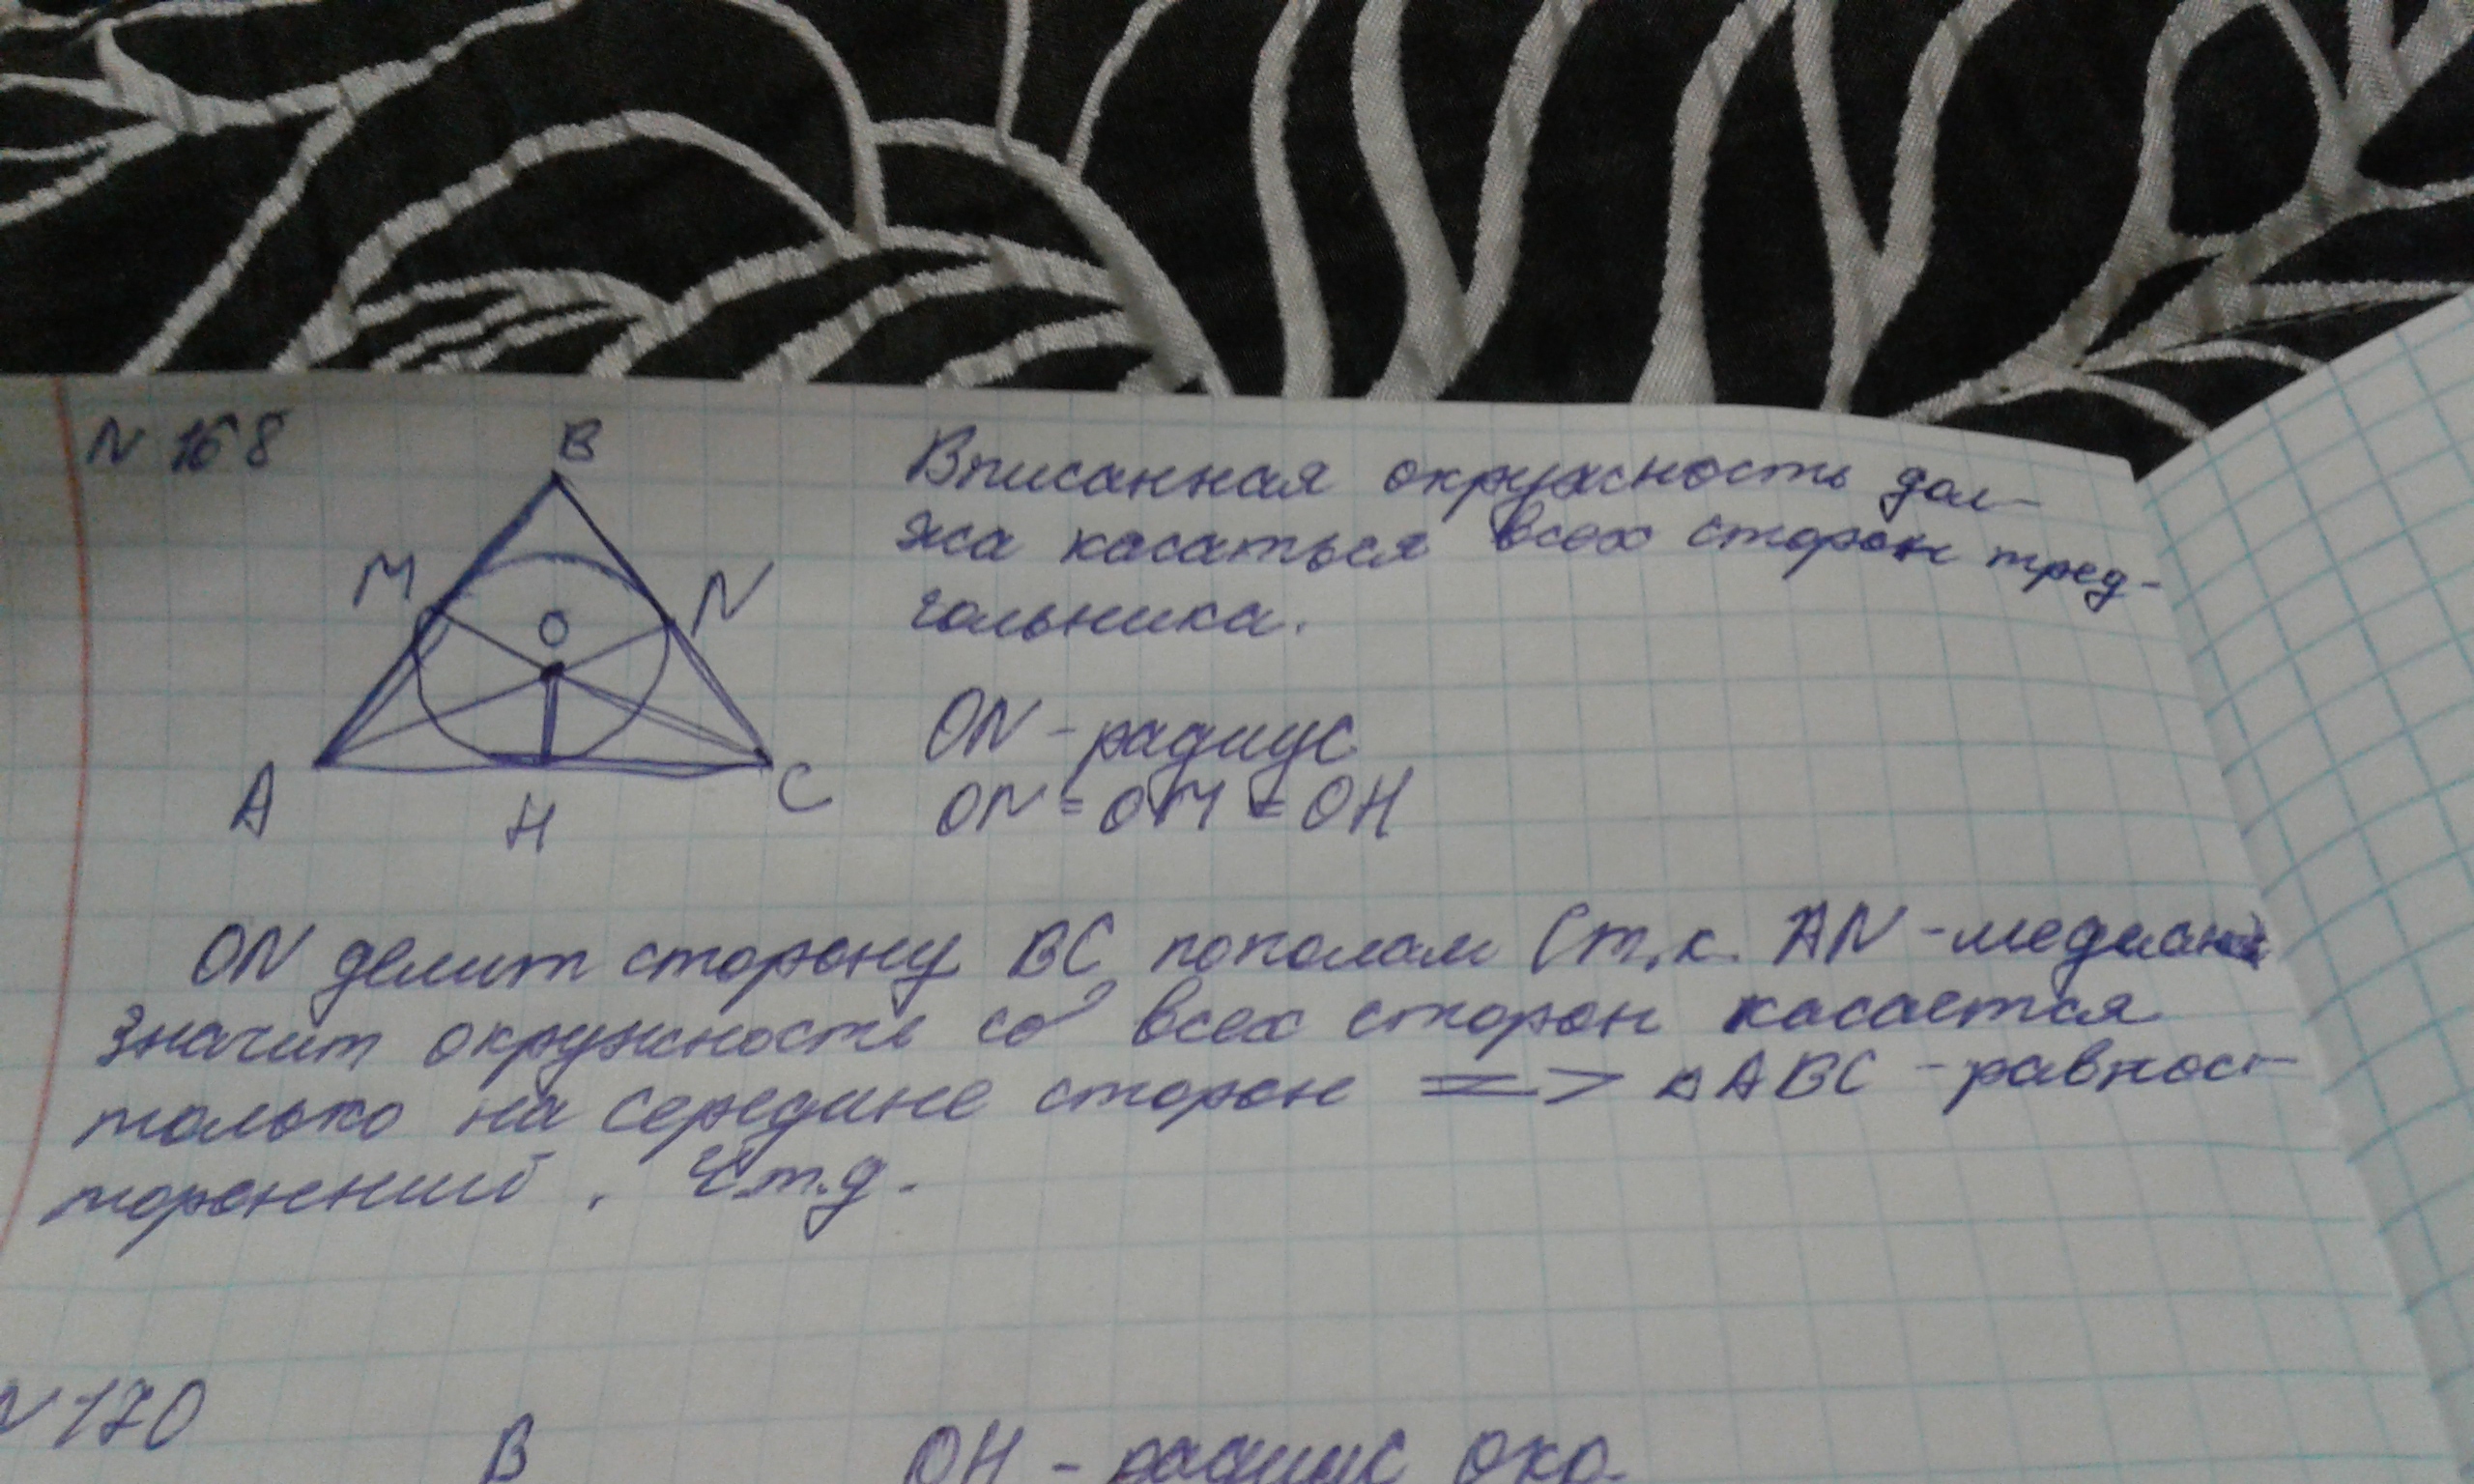 N 168
B
M
N
O
A
H
C
Вписанная окружность дол-
жа касаться всех сторон треу-
гольника.
ON - радиус
ON = OM = OH
ON делит сторону BC пополам (т.к. AN - медиана
Значит окружность со всех сторон касается
только на середине сторон => △ABC - равност-
торонний. Ч.т.д.
N 170
B
OH - радиус окр.